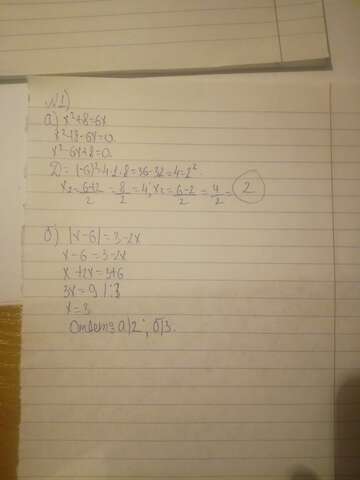 №1)
а) x²+8=6x
x²+8-6x=0
x²-6x+8=0
D=(-6)²-4·1·8=36-32=4=2².
x₁=6+2/2=8/2=4; x₂=6-2/2=4/2=2
б) |x-6|=3-2x
x-6=3-2x
x+2x=3+6
3x=9 |:3
x=3
Ответ: а) 2; б) 3.